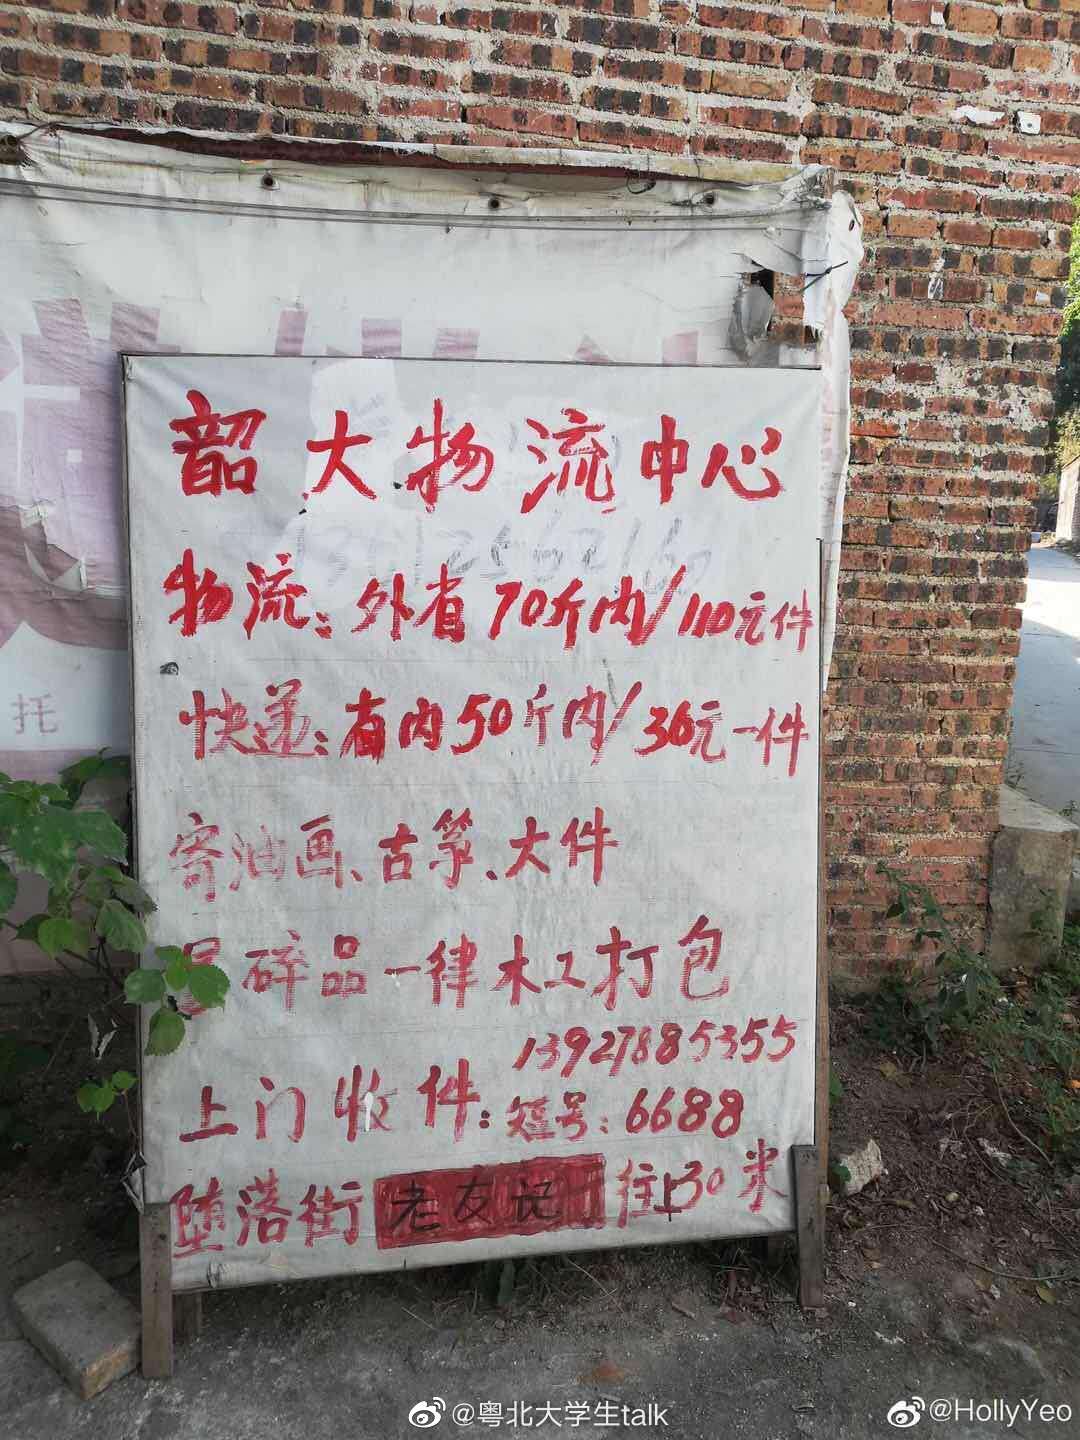 韶大物流中心
物流:外省70斤内/110元件
快递:省内50斤内/36元一件
寄油画、古筝、大件
易碎品一律木工打包
13927885355
上门收件:短号:6688
堕落街老友记往上30米
托
@粤北大学生talk
@HollyYeo